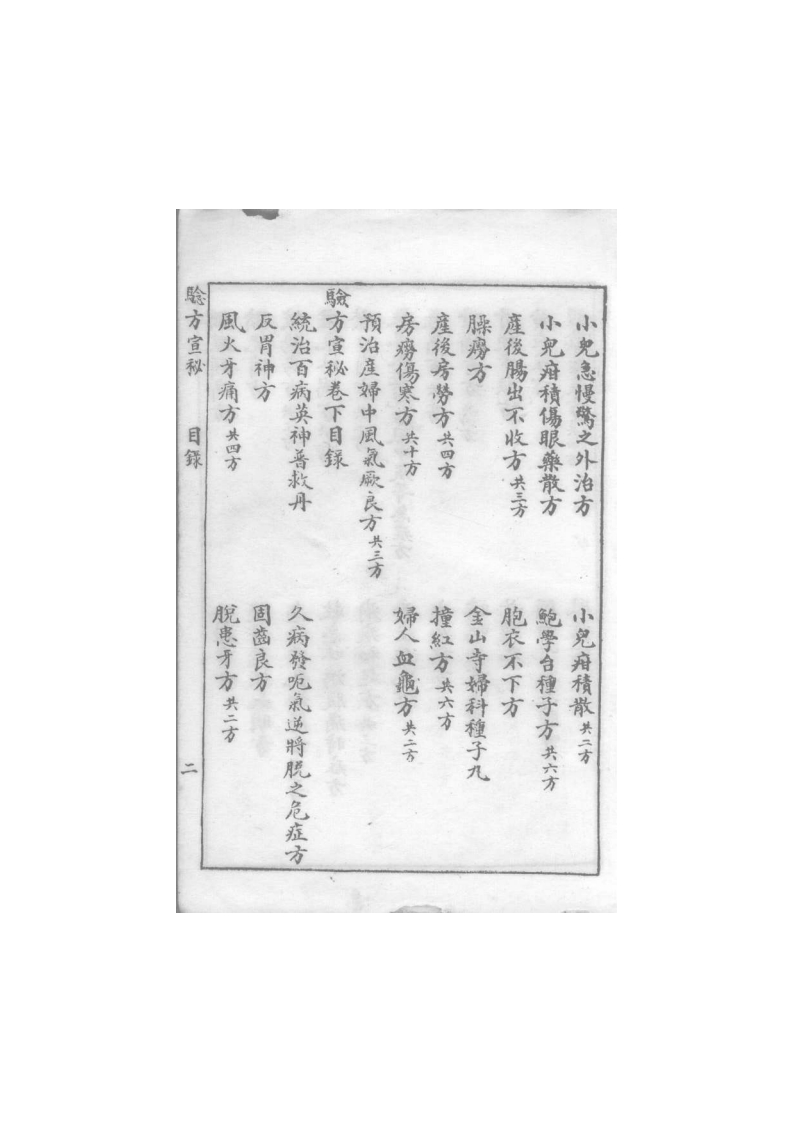 小兒急慢驚之外治方　小兒疳積散共二方
小兒疳積傷眼藥散方　鮑學台種子方共六方
產後腸出不收方共三方　胞衣不下方
臊癆方　金山寺婦科種子丸
產後房勞方共四方　撞紅方共六方
房癆傷寒方共十方　婦人血龜方共二方
預治產婦中風氣厥良方共三方
驗方宣秘卷下目錄
統治百病英神普救丹　久病發呃氣逆將脫之危症方
反胃神方　固齒良方
風火牙痛方共四方　脫患牙方共二方
驗方宣秘　目錄　二